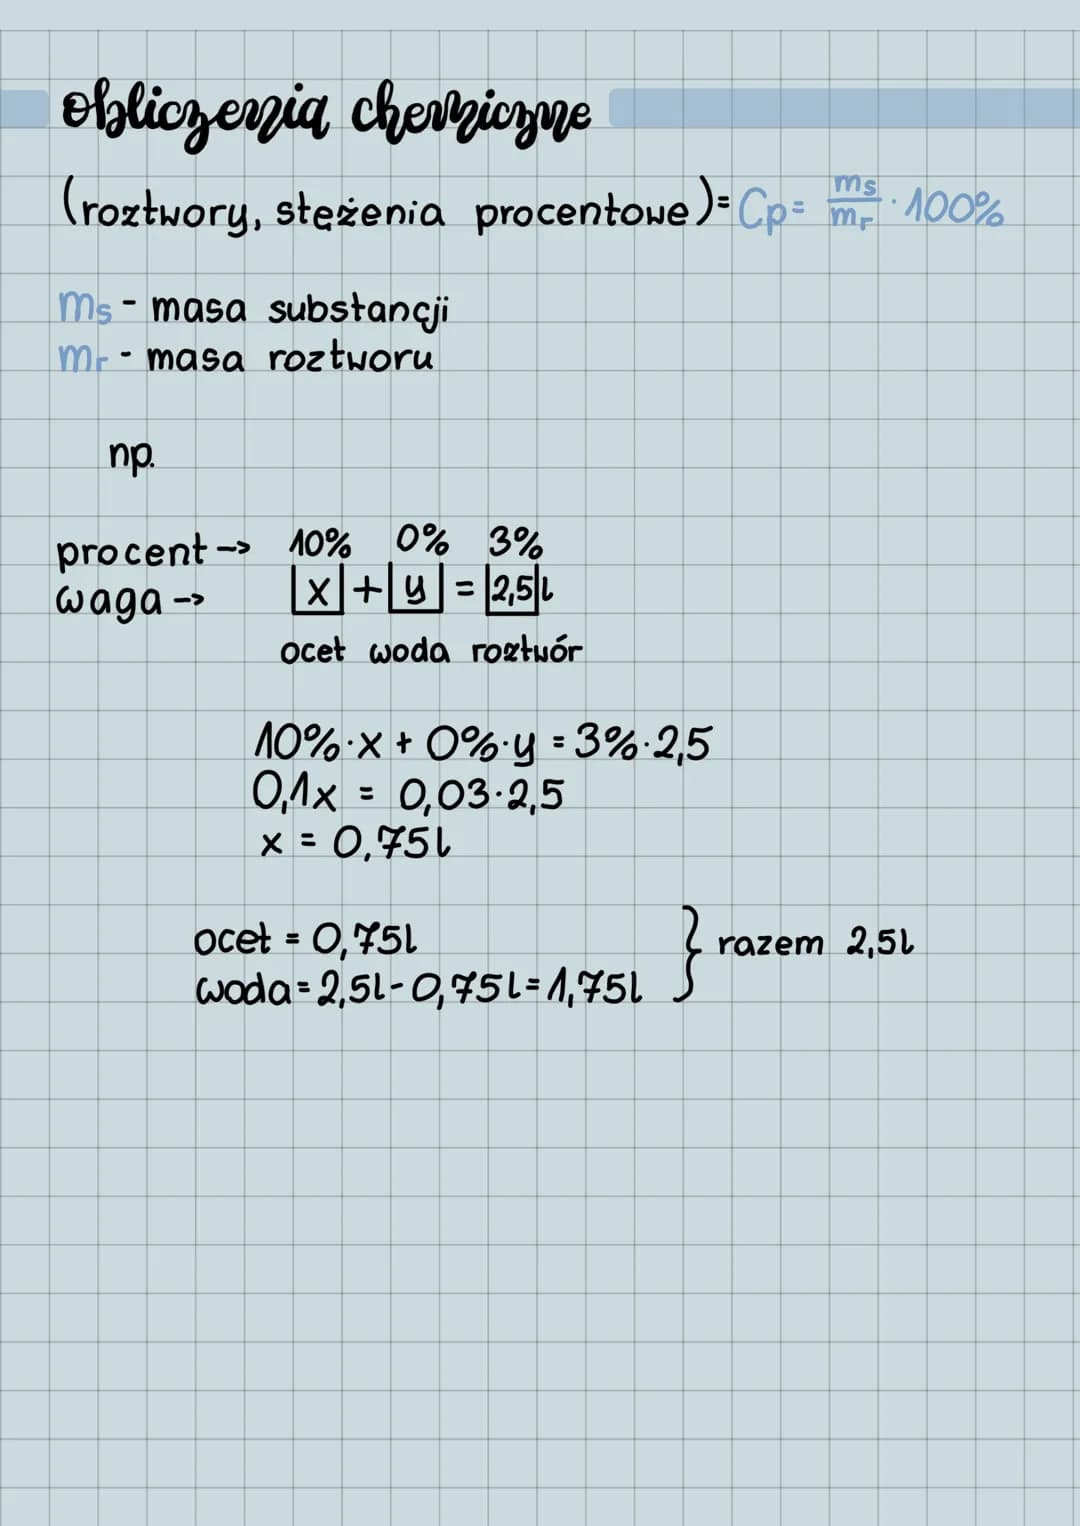 obliczenia chemiczne
(roztwory, stężenia procentowe)= Cp= ms/mr · 100%
ms - masa substancji
mr - masa roztworu
np.
procent -> 10% 0% 3%
waga -> x + y = 2,5 l
ocet woda roztwór
10%·x + 0%·y = 3%·2,5
0,1x = 0,03·2,5
x = 0,75l
ocet = 0,75l
woda = 2,5l - 0,75l = 1,75l } razem 2,5l